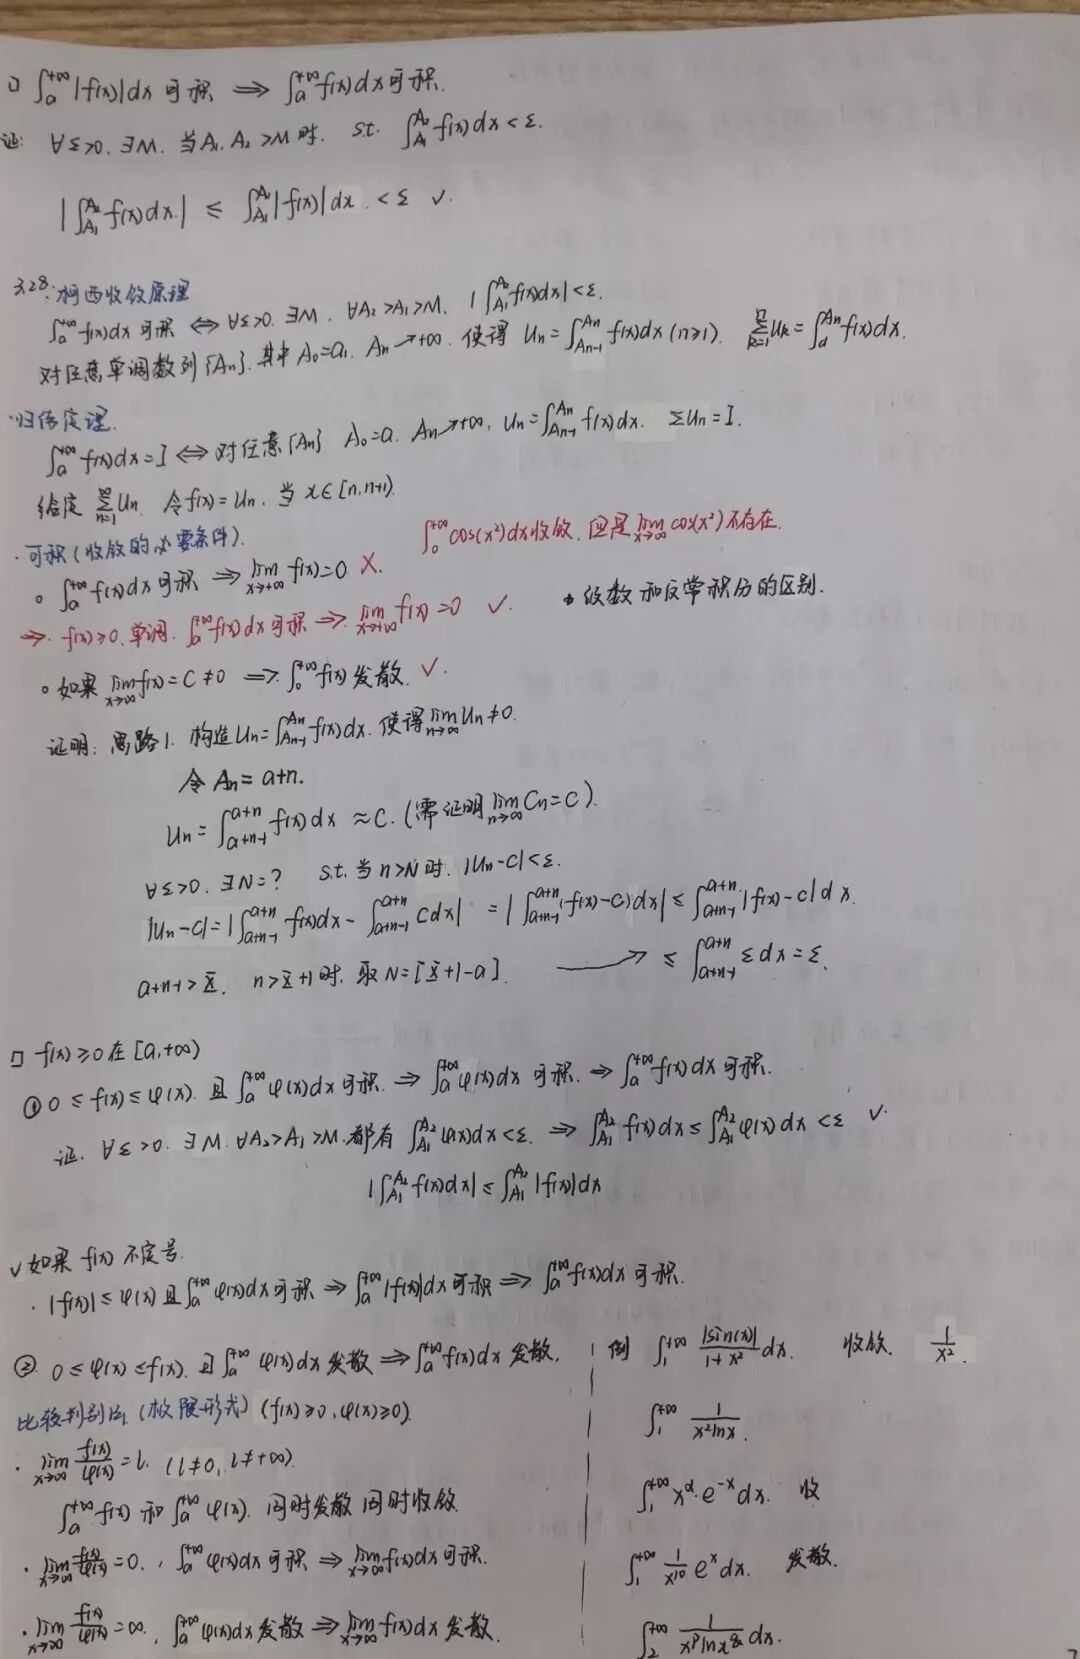 □ ∫_a^{+∞}|f(x)|dx 可积 ⇒ ∫_a^{+∞}f(x)dx可积.
证: ∀ε>0. ∃M. 当A₁, A₂>M时. s.t. ∫_{A₁}^{A₂}f(x)dx<ε.
|∫_{A₁}^{A₂}f(x)dx| ≤ ∫_{A₁}^{A₂}|f(x)|dx <ε ✓.
3.28: 柯西收敛原理
∫_a^{+∞}f(x)dx 可积 ⇔ ∀ε>0. ∃M. ∀A₂>A₁>M. |∫_{A₁}^{A₂}f(x)dx|<ε.
对任意单调数列{An}. 其中A₀=a, An↗+∞. 使得 Un=∫_{An-1}^{An}f(x)dx (n≥1). Σ_{k=1}^{n}Uk=∫_a^{An}f(x)dx.
·归结定理.
∫_a^{+∞}f(x)dx=I ⇔ 对任意{An} A₀=a. An↗+∞, Un=∫_{An-1}^{An}f(x)dx. ΣUn=I.
给定 Σ_{n=1}^{∞}Un. 令f(x)=Un. 当x∈[n,n+1).
·可积(收敛的必要条件).
∫_0^{+∞}cos(x²)dx收敛. 但是lim_{x→∞}cos(x²)不存在.
∘ ∫_a^{+∞}f(x)dx可积 ⇒ lim_{x→+∞}f(x)=0 ✗.
⇒ f(x)≥0. 单调. ∫_a^{+∞}f(x)dx可积 ⇒ lim_{x→+∞}f(x)=0 ✓.
级数和反常积分的区别.
∘如果 lim_{x→∞}f(x)=C≠0 ⇒ ∫_0^{+∞}f(x)发散. ✓.
证明: 思路1. 构造Un=∫_{An-1}^{An}f(x)dx. 使得lim_{n→∞}Un≠0.
令An=a+n.
Un=∫_{a+n-1}^{a+n}f(x)dx ≈C. (需证明lim_{n→∞}Cn=C).
∀ε>0. ∃N=? s.t. 当n>N时. |Un-C|<ε.
|Un-C|=|∫_{a+n-1}^{a+n}f(x)dx-∫_{a+n-1}^{a+n}Cdx| =|∫_{a+n-1}^{a+n}(f(x)-C)dx|≤∫_{a+n-1}^{a+n}|f(x)-C|dx.
a+n-1>X̄. n>X̄+1时. 取N=[X̄+1-a]. → ≤∫_{a+n-1}^{a+n}εdx=ε.
□ f(x)≥0在[a,+∞)
① 0≤f(x)≤φ(x). 且∫_a^{+∞}φ(x)dx可积. ⇒ ∫_a^{+∞}φ(x)dx 可积. ⇒ ∫_a^{+∞}f(x)dx可积.
证. ∀ε>0. ∃M. ∀A₂>A₁>M. 都有∫_{A₁}^{A₂}φ(x)dx<ε. ⇒ ∫_{A₁}^{A₂}f(x)dx≤∫_{A₁}^{A₂}φ(x)dx<ε ✓
|∫_{A₁}^{A₂}f(x)dx|≤∫_{A₁}^{A₂}|f(x)|dx
✓如果f(x)不定号.
·|f(x)|≤φ(x)且∫_a^{+∞}φ(x)dx可积 ⇒ ∫_a^{+∞}|f(x)|dx可积 ⇒ ∫_a^{+∞}f(x)dx可积.
② 0≤φ(x)≤f(x). 且∫_a^{+∞}φ(x)dx发散 ⇒ ∫_a^{+∞}f(x)dx发散.
比较判别法(极限形式) (f(x)≥0, φ(x)≥0).
·lim_{x→∞} f(x)/φ(x)=l. (l≠0, l≠+∞).
∫_a^{+∞}f(x) 和 ∫_a^{+∞}φ(x). 同时发散同时收敛
·lim_{x→∞} f(x)/φ(x)=0., ∫_a^{+∞}φ(x)dx可积 ⇒ lim_{x→∞}f(x)dx可积.
·lim_{x→∞} f(x)/φ(x)=∞., ∫_a^{+∞}φ(x)dx发散 ⇒ lim_{x→∞}f(x)dx发散.
例 ∫_1^{+∞} |sin(x)|/(1+x²) dx. 收敛. 1/x².
∫_1^{+∞} 1/(x²lnx).
∫_1^{+∞} x^α·e^{-x}dx. 收
∫_1^{+∞} 1/x^{10} e^x dx. 发散.